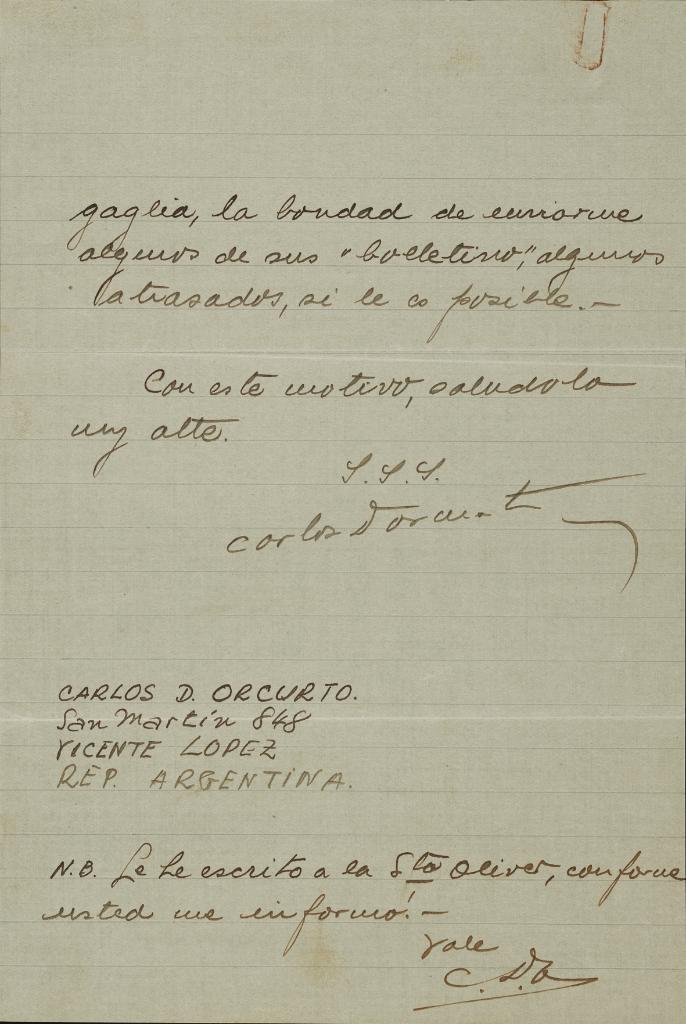 gaglia, la bondad de enviarme
algunos de sus "bolletino", algunos
atrasados, si le es posible.—
Con este motivo, saludola
muy atte.
S.S.S.
Carlos D Orcurto
CARLOS D. ORCURTO.
San Martín 848
VICENTE LOPEZ
REP. ARGENTINA.
N.B. Le he escrito a la Sta Oliver, conforme
usted me informó!—
Vale
C.D.O